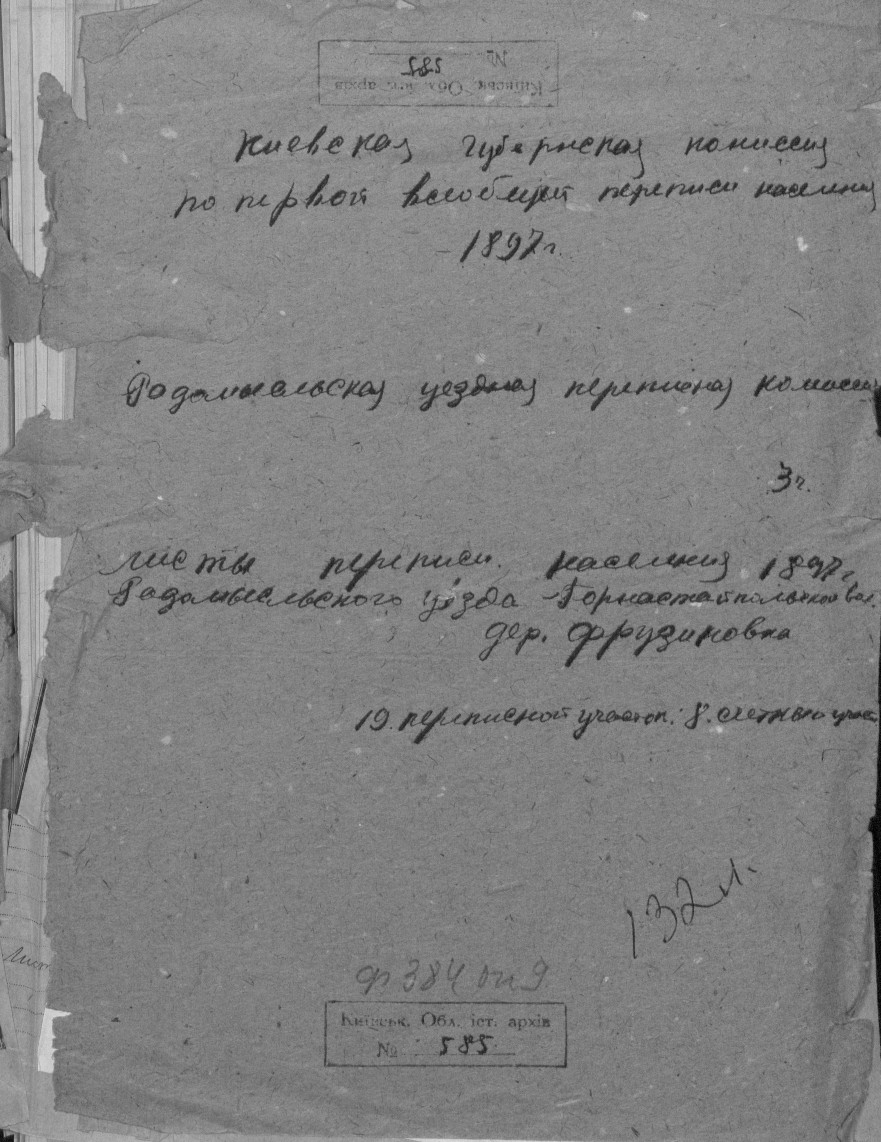 № 585
Київськ. Обл. іст. архів
Киевская губернская комиссия
по первой всеобщей переписи населения
1897 г.
Радомысльская уездная переписная комиссия
3 ч.
листы переписи населения 1897 г.
Радомысльского уезда Горностайпольской вол.
дер. Фрузиновка
19. переписной участок. 8. счетный участ
132 л.
ф 384 оп 9
Київськ. Обл. іст. архів
№ 585